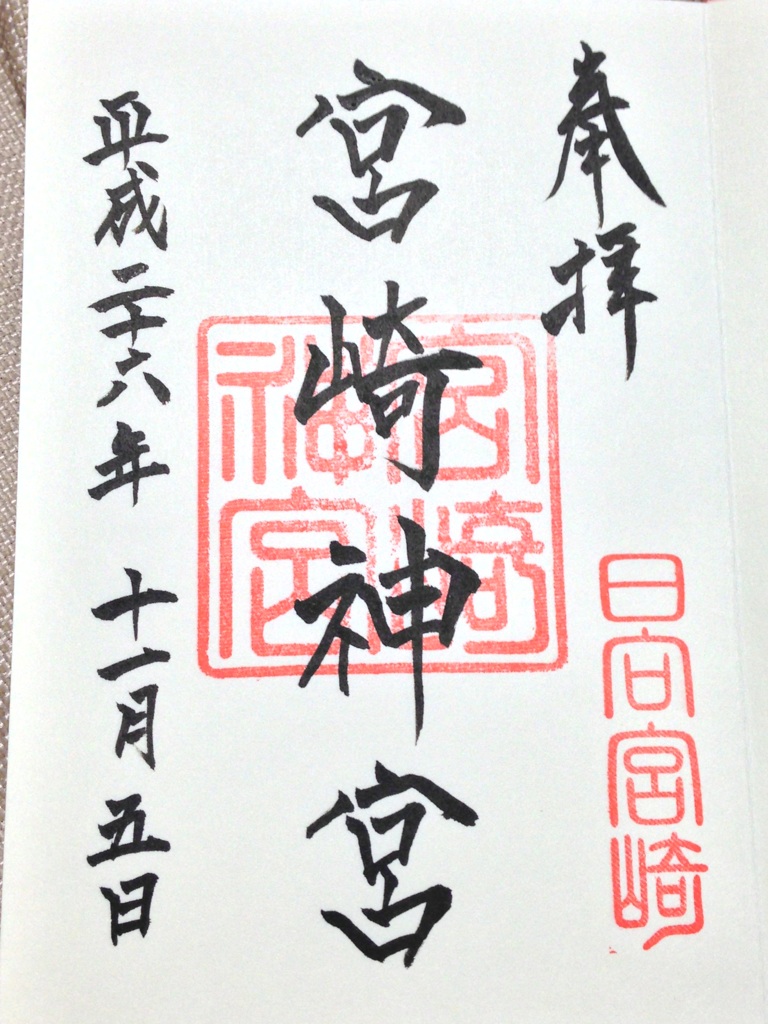 奉拝
日向宮崎
宮崎神宮
宮崎神宮
平成二十六年 十一月五日